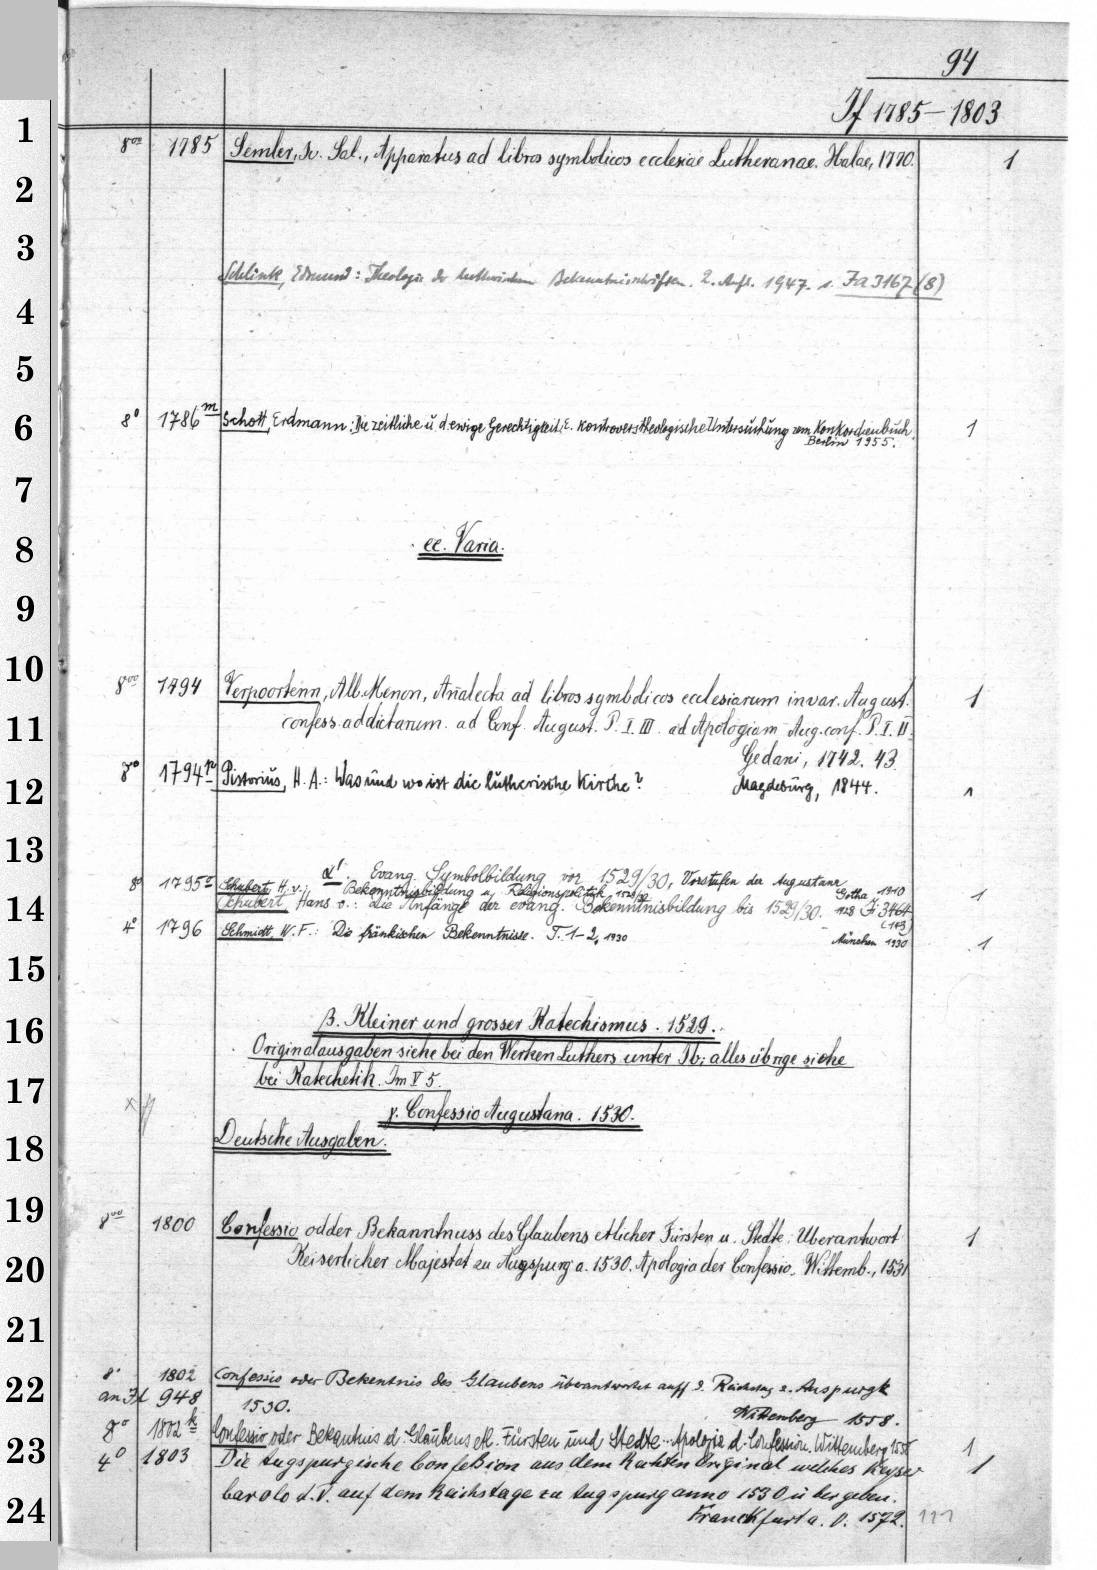 94
If 1785-1803
8vo 1785 Semler, Jo. Sal., Apparatus ad libros symbolicos ecclesiae Lutheranae. Halae, 1770. 1
Schlink, Edmund: Theologie der lutherischen Bekenntnisschriften. 2. Aufl. 1947. s. Fa 3167 (8)
8° 1786 m Schott, Erdmann: Die zeitliche u. d. ewige Gerechtigkeit. E. kontroverstheologische Untersuchung zum Konkordienbuch. 1
Berlin 1955.
ee. Varia.
8vo 1794 Verpoortenn, Alb. Menon, Analecta ad libros symbolicos ecclesiarum invar. August. 1
confess. addictarum. ad Conf. August. P. I. III. ad Apologiam Aug. conf. P. I. II.
Gedani, 1742. 43.
8° 1794 n Pistorius, H. A.: Was und wo ist die lutherische Kirche? Magdeburg, 1844. 1
α'. Evang. Symbolbildung vor 1529/30, Vorstufen der Augustana
8° 1795 Schubert, H. v.: Bekenntnisbildung u. Religionspolitik, 1529/30 Gotha 1910 1
Schubert, Hans v.: Die Anfänge der evang. Bekenntnisbildung bis 1529/30. 1928 3464
(143)
4° 1796 Schmidt, W. F.: Die fränkischen Bekenntnisse. T. 1-2, 1930 München 1930 1
β. Kleiner und grosser Katechismus. 1529.
Originalausgaben siehe bei den Werken Luthers unter Ib; alles übrige siehe
bei Katechetik. Im V 5.
γ. Confessio Augustana. 1530.
Deutsche Ausgaben.
8vo 1800 Confessio odder Bekanntnuss des Glaubens etlicher Fürsten u. Stedte: Uberantwort 1
Keiserlicher Majestat zu Augspurg a. 1530. Apologia der Confessio. Wittemb., 1531
8° 1802 Confessio oder Bekentnis des Glaubens überantwortet auff d. Reichstag z. Auspurgk
an If 948 1530. Wittenberg 1558.
8° 1802 k Confessio oder Bekantnis d. Glaubens etl. Fürsten und Stedte. Apologia d. Confession. Wittemberg 1 1
4° 1803 Die Augspurgische Confeßion aus dem Rechten Original welches Keyser 1
Carolo d. V. auf dem Reichstage zu Augspurg anno 1530 übergeben.
Franckfurt a. O. 1572.